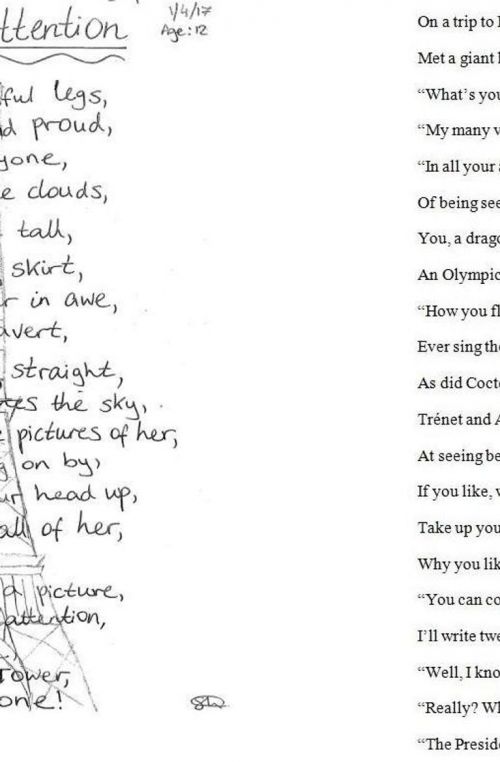 ttention
1/4/17
Age:12
ful legs,
d proud,
yone,
e clouds,
tall,
skirt,
r in awe,
vert,
straight,
the sky,
pictures of her,
g on by,
ur head up,
all of her,
a picture,
attention,
Tower,
one!
On a trip to
Met a giant
“What’s you
“My many v
“In all your
Of being see
You, a drago
An Olympic
“How you fl
Ever sing the
As did Coct
Trénet and A
At seeing be
If you like,
Take up you
Why you lik
“You can co
I’ll write twe
“Well, I kno
“Really? Wh
“The Preside